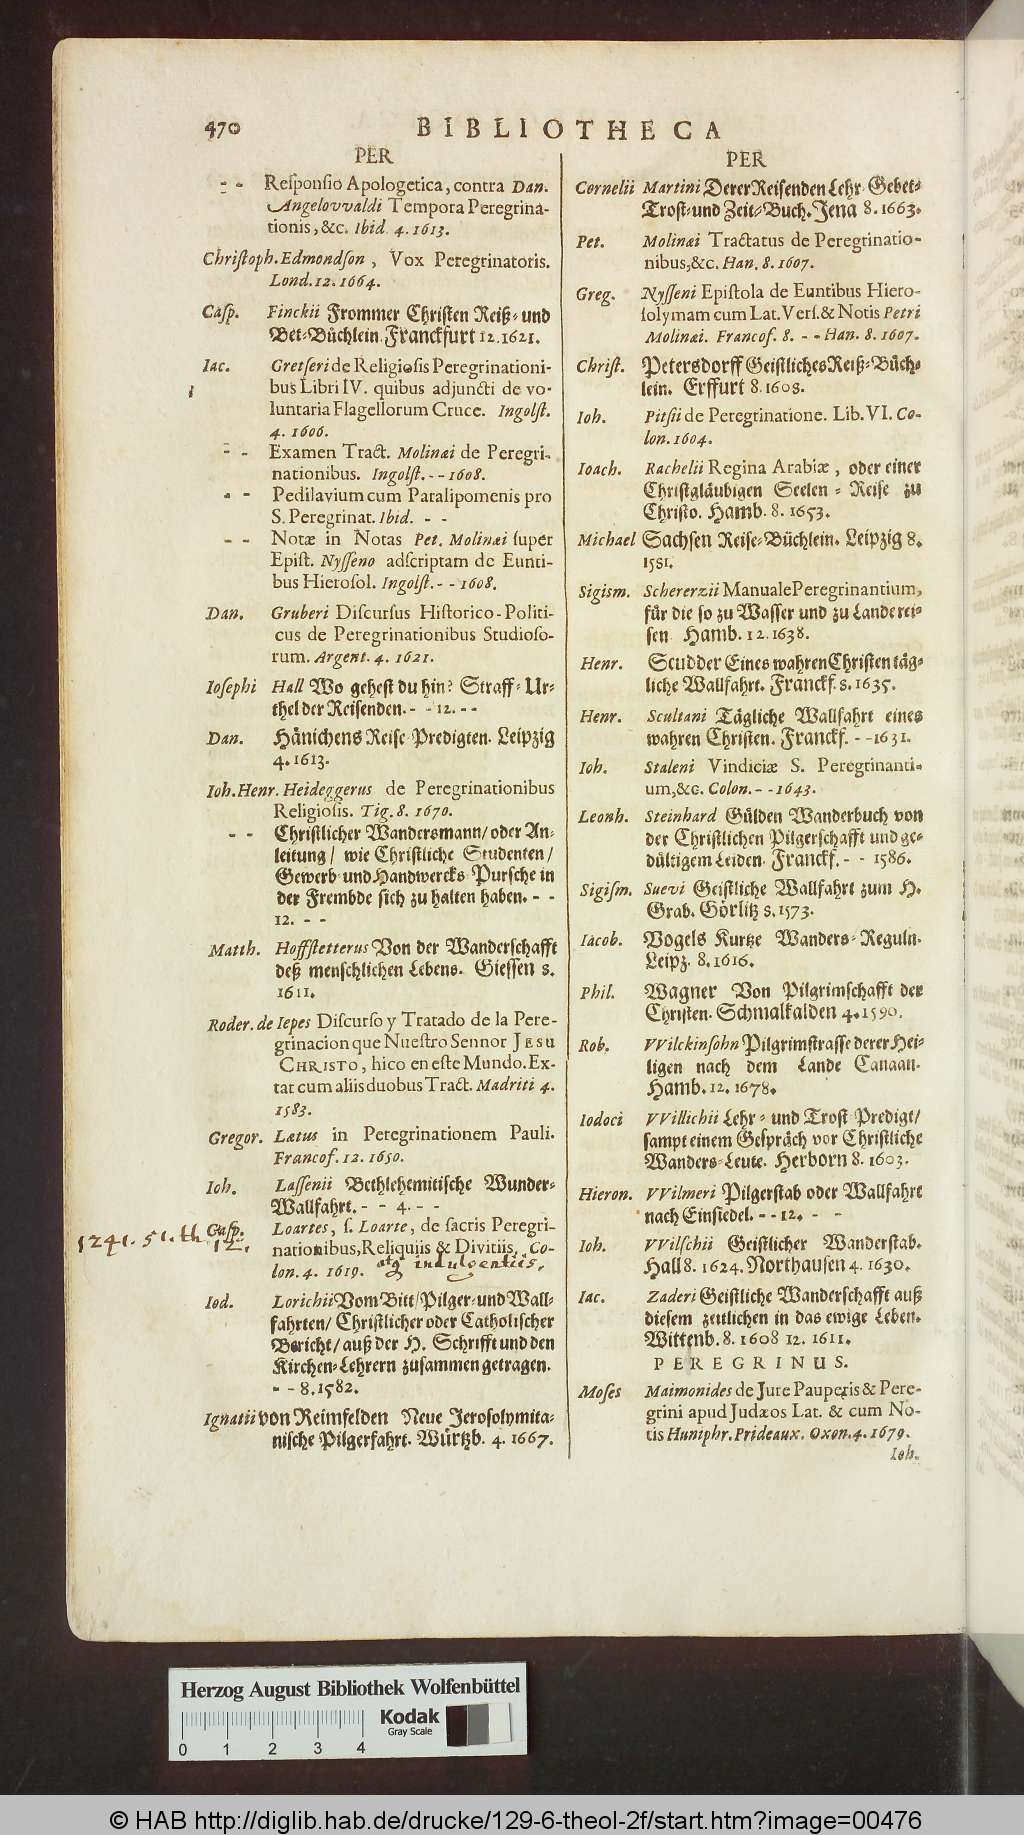 470
BIBLIOTHECA
PER
- - Responsio Apologetica, contra Dan.
Angelovvaldi Tempora Peregrina-
tionis, &c. Ibid. 4. 1613.
Christoph. Edmondson, Vox Peregrinatoris.
Lond. 12. 1664.
Casp. Finckii Frommer Christen Reiß- und
Bet-Büchlein. Franckfurt 12. 1621.
Iac. Gretseri de Religiosis Peregrinationi-
bus Libri IV. quibus adjuncti de vo-
luntaria Flagellorum Cruce. Ingolst.
4. 1606.
- - Examen Tract. Molinæi de Peregri-
nationibus. Ingolst. - - 1608.
- - Pedilavium cum Paralipomenis pro
S. Peregrinat. Ibid. - -
- - Notæ in Notas Pet. Molinæi super
Epist. Nysseno adscriptam de Eunti-
bus Hierosol. Ingolst. - - 1608.
Dan. Gruberi Discursus Historico-Politi-
cus de Peregrinationibus Studioso-
rum. Argent. 4. 1621.
Iosephi Hall Wo gehest du hin? Straff-Ur-
thel der Reisenden. - - 12. - -
Dan. Hänichens Reise-Predigten. Leipzig
4. 1613.
Ioh. Henr. Heideggerus de Peregrinationibus
Religiosis. Tig. 8. 1670.
- - Christlicher Wandersmann/ oder An-
leitung/ wie Christliche Studenten/
Gewerb- und Handwercks-Pursche in
der Frembde sich zu halten haben. - -
12. - -
Matth. Hoffstetterus Von der Wanderschafft
deß menschlichen Lebens. Giessen 8.
1611.
Roder. de Iepes Discurso y Tratado de la Pere-
grinacion que Nuestro Sennor JESU
CHRISTO, hico en este Mundo. Ex-
tat cum aliis duobus Tract. Madriti 4.
1583.
Gregor. Lætus in Peregrinationem Pauli.
Francof. 12. 1650.
Ioh. Lassenii Bethlehemitische Wunder-
Wallfahrt. - - 4. - -
Casp. Loartes, s. Loarte, de sacris Peregri-
1241. 51. th 12.
nationibus, Reliquiis & Divitiis. Co-
lon. 4. 1619. atq indulgentiis.
Iod. Lorichii Vom Bitt/ Pilger- und Wall-
fahrten/ Christlicher oder Catholischer
Bericht/ auß der H. Schrifft und den
Kirchen-Lehrern zusammen getragen.
- - 8. 1582.
Ignatii von Reimfelden Neue Jerosolymita-
nische Pilgerfahrt. Würtzb. 4. 1667.
PER
Cornelii Martini Derer Reisenden Lehr- Gebet-
Trost- und Zeit-Buch. Jena 8. 1663.
Pet. Molinæi Tractatus de Peregrinatio-
nibus, &c. Han. 8. 1607.
Greg. Nysseni Epistola de Euntibus Hiero-
solymam cum Lat. Vers. & Notis Petri
Molinæi. Francof. 8. - - Han. 8. 1607.
Christ. Petersdorff Geistliches Reiß-Büch-
lein. Erffurt 8. 1608.
Ioh. Pitsii de Peregrinatione. Lib. VI. Co-
lon. 1604.
Ioach. Rachelii Regina Arabiæ, oder einer
Christgläubigen Seelen-Reise zu
Christo. Hamb. 8. 1653.
Michael Sachsen Reise-Büchlein. Leipzig 8.
1581.
Sigism. Schererzii Manuale Peregrinantium,
für die so zu Wasser und zu Lande rei-
sen. Hamb. 12. 1638.
Henr. Scudder Eines wahren Christen täg-
liche Wallfahrt. Franckf. 8. 1635.
Henr. Scultani Tägliche Wallfahrt eines
wahren Christen. Franckf. - - 1631.
Ioh. Staleni Vindiciæ S. Peregrinanti-
um, &c. Colon. - - 1643.
Leonh. Steinhard Gülden Wanderbuch von
der Christlichen Pilgerschafft und ge-
dültigem Leiden. Franckf. - - 1586.
Sigism. Suevi Geistliche Wallfahrt zum H.
Grab. Görlitz 8. 1573.
Iacob. Vogels Kurtze Wanders-Reguln.
Leipz. 8. 1616.
Phil. Wagner Von Pilgrimschafft der
Christen. Schmalkalden 4. 1590.
Rob. VVilckinsohn Pilgrimstrasse derer Hei-
ligen nach dem Lande Canaan.
Hamb. 12. 1678.
Iodoci VVillichii Lehr- und Trost-Predigt/
sampt einem Gespräch vor Christliche
Wanders-Leute. Herborn 8. 1603.
Hieron. VVilmeri Pilgerstab oder Wallfahrt
nach Einsiedel. - - 12. - -
Ioh. VVilschii Geistlicher Wanderstab.
Hall 8. 1624. Northausen 4. 1630.
Iac. Zaderi Geistliche Wanderschafft auß
diesem zeitlichen in das ewige Leben.
Wittenb. 8. 1608 12. 1611.
PEREGRINUS.
Moses Maimonides de Jure Pauperis & Pere-
grini apud Judæos Lat. & cum No-
tis Humphr. Prideaux. Oxon. 4. 1679.
Ioh.
Herzog August Bibliothek Wolfenbüttel
Kodak
Gray Scale
0 1 2 3 4
© HAB http://diglib.hab.de/drucke/129-6-theol-2f/start.htm?image=00476